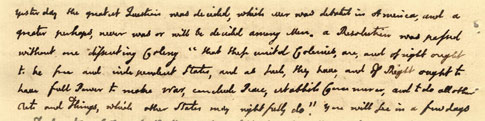 Yesterday the greatest Question was decided, which ever was debated in America, and a
greater perhaps, never was or will be decided among Men. a Resolution was passed
without one dissenting Colony "that these united Colonies, are, and of right ought
to be free and independent States, and as such, they have and of Right ought to
have full Power to make War, conclude Peace, establish Commerce, and to do all other
Acts and Things, which other States may rightfully do." You will see in a few days